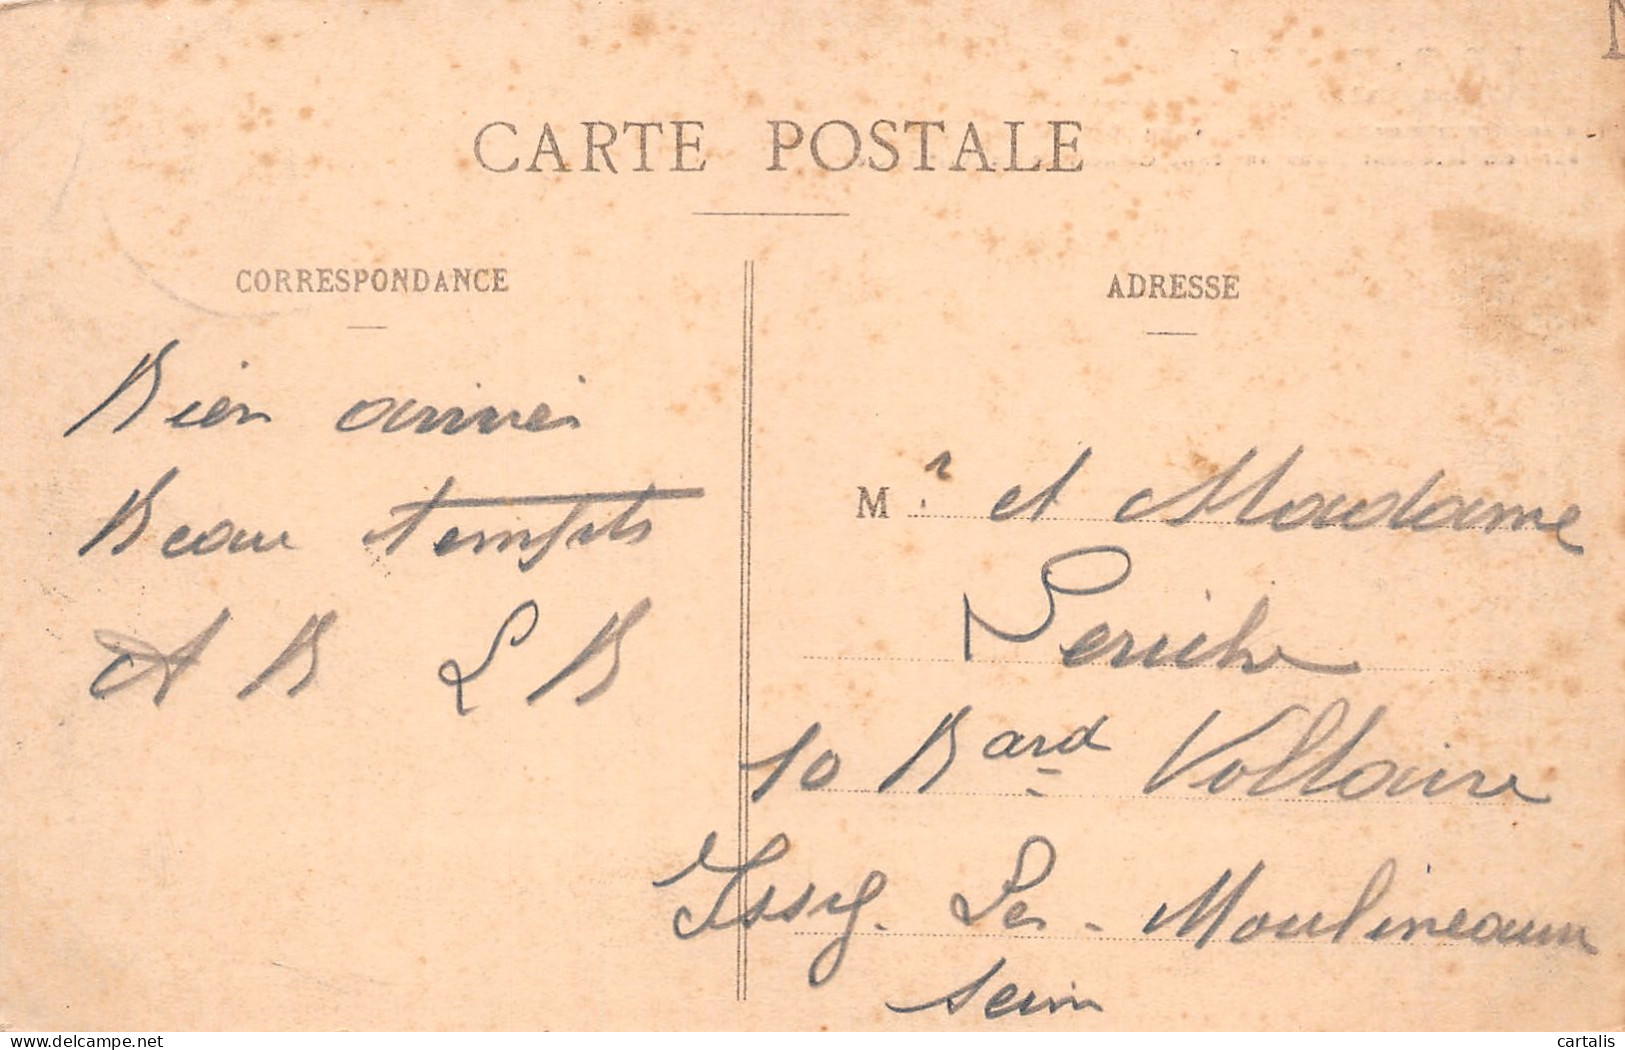 CARTE POSTALE
CORRESPONDANCE
Bien arrivés
Beau temps
A B L B
ADRESSE
M.r et Madame
10 Bard Voltaire
Issy-Les-Moulineaux
Seine
cartalis
delcampe.net